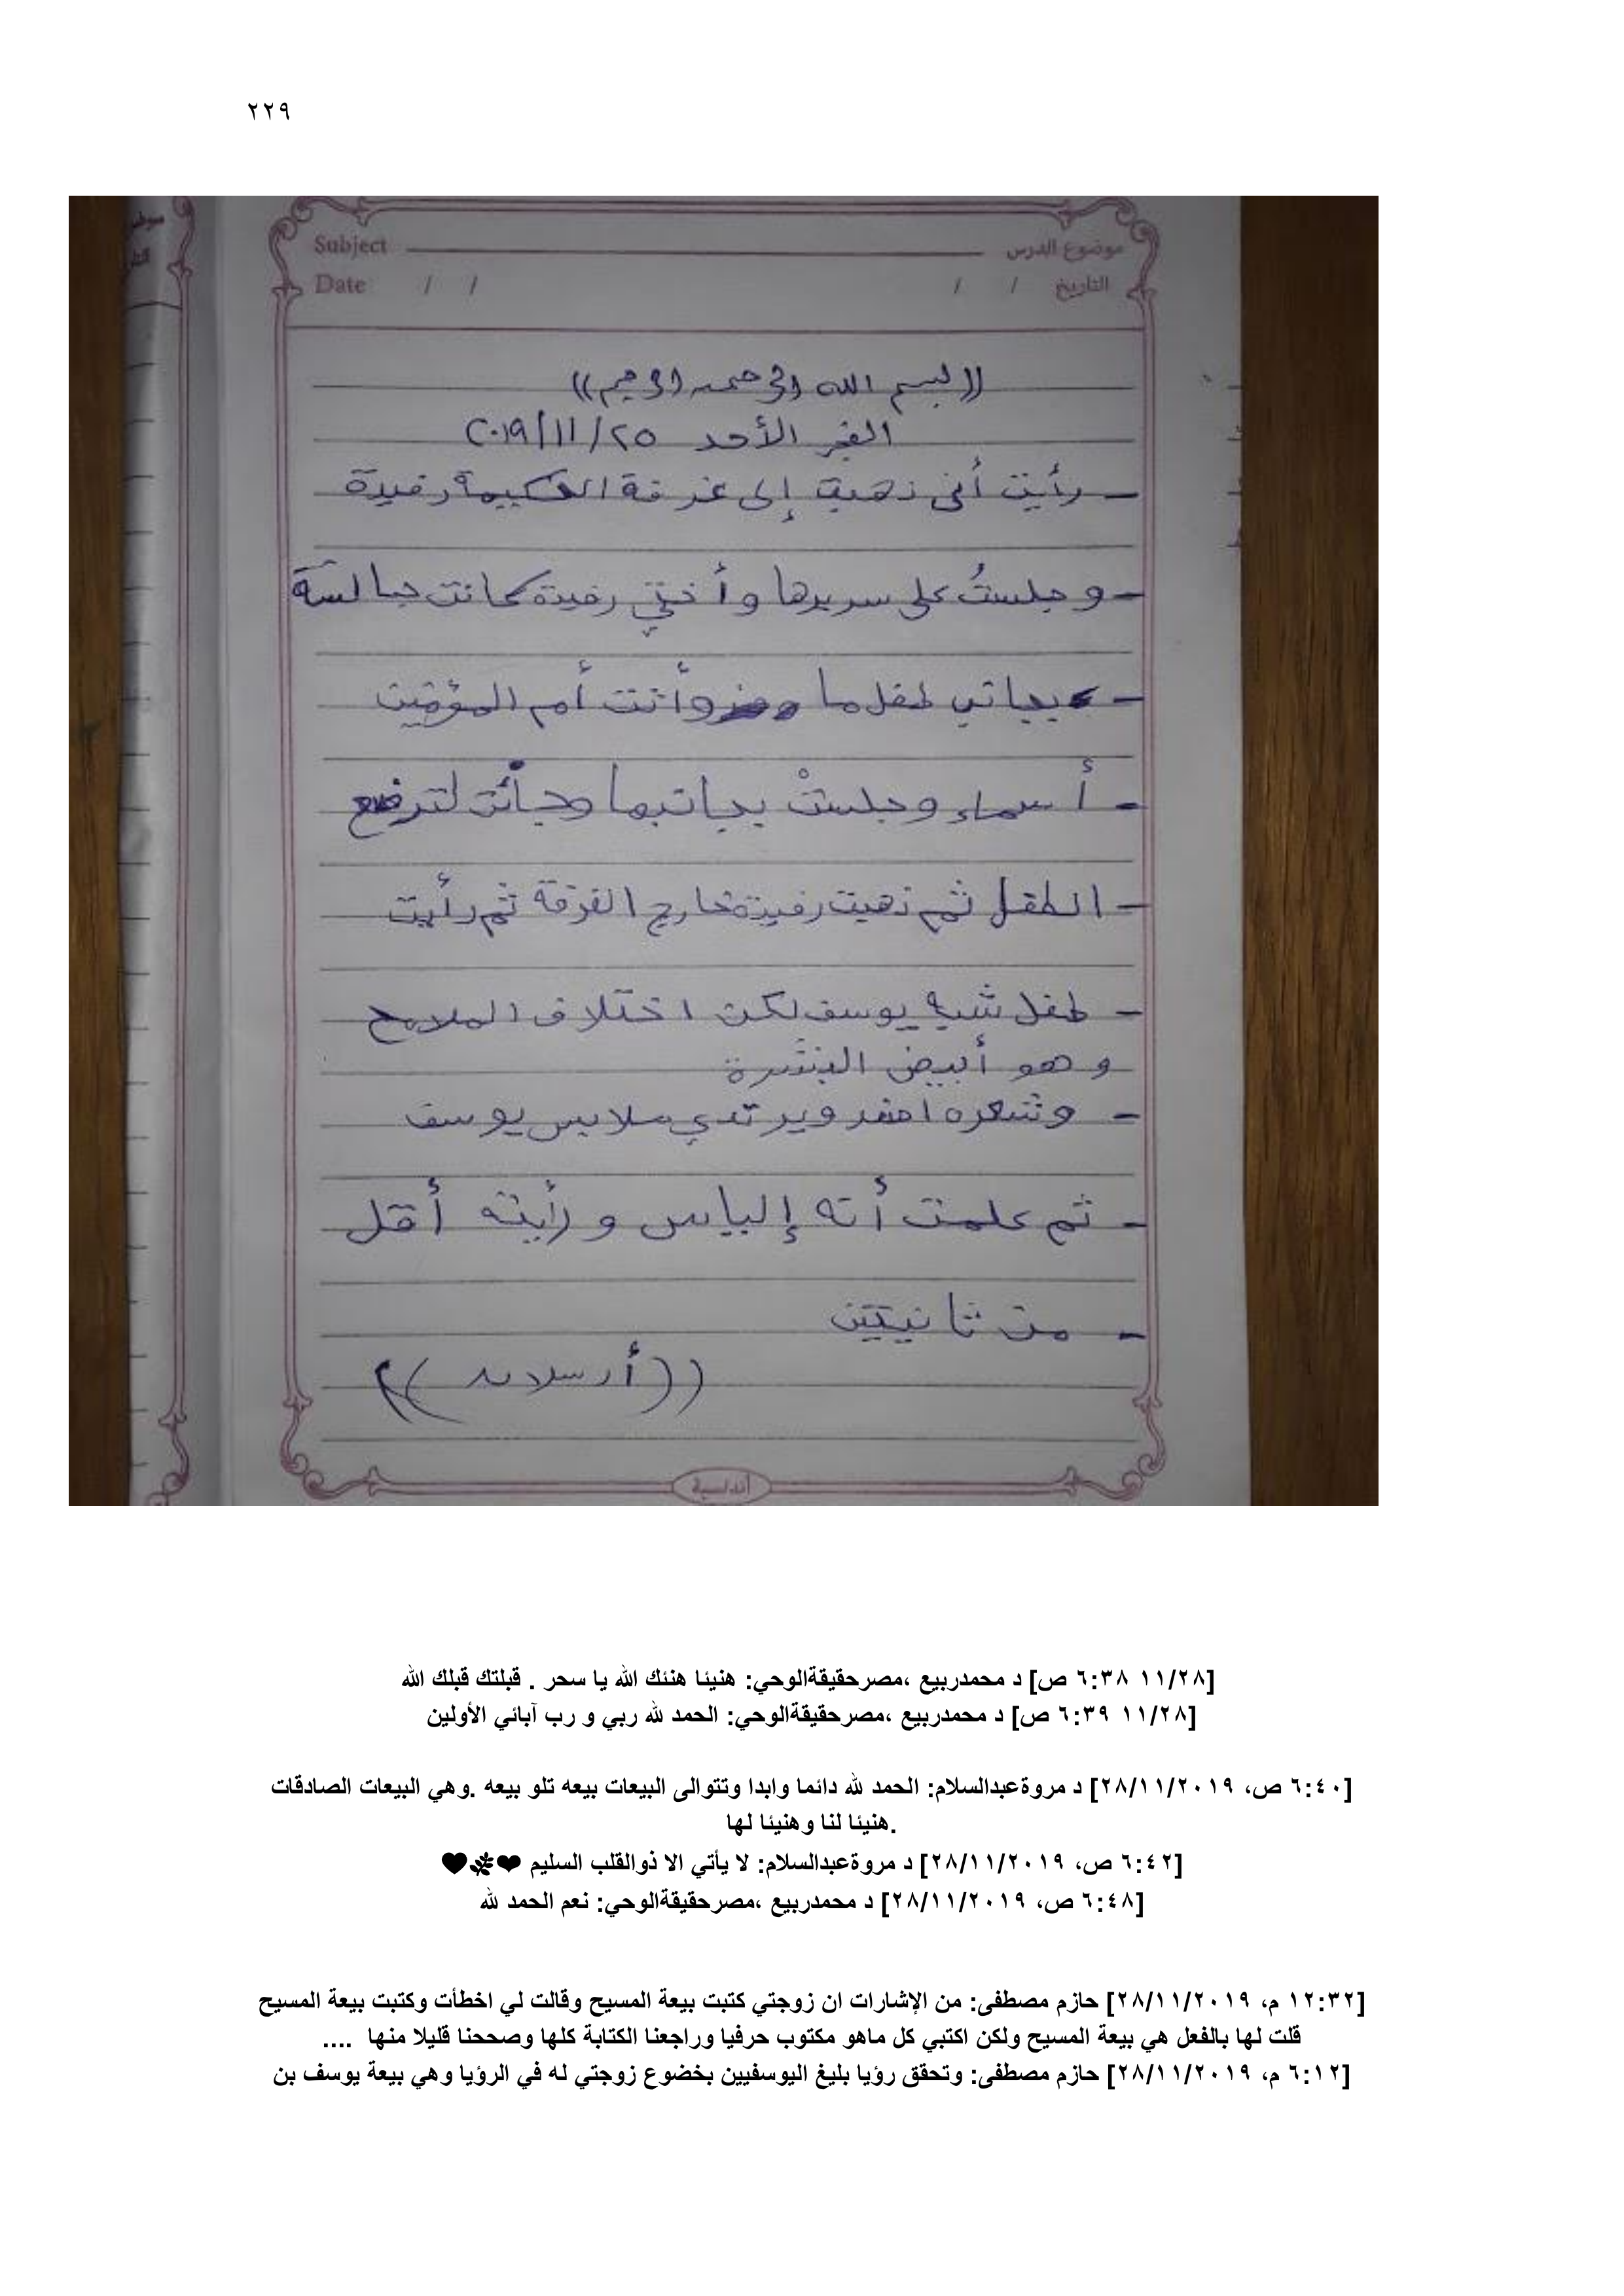 ٢٢٩
Subject موضوع الدرس
Date / / / / التاريخ
((بسم الله الرحمن الرحيم))
الفجر الأحد ٢٥/١١/٢٠١٩
- رأيت أني ذهبت إلى غرفة الحكيمة رفيدة
- وجلستُ على سريرها وأختي رفيدة كانت جالسة
- بجانبي طفل ما وأتت أم المؤمنين
- أسماء وجلستْ بجانبها وجائت لترضع
- الطفل ثم ذهبت رفيدة خارج الغرفة ثم رأيت
- طفل شبه يوسف لكن اختلاف الملامح
وهو أبيض البشرة
- وشعره اصفر ويرتدي ملابس يوسف
- ثم علمت أنه إلياس و رأيته أقل
- من ثانيتين
((أرسلان))
أندلسية
[١١/٢٨ ٦:٣٨ ص] د محمدربيع ،مصرحقيقةالوحي: هنيئا هنئك الله يا سحر . قبلتك قبلك الله
[١١/٢٨ ٦:٣٩ ص] د محمدربيع ،مصرحقيقةالوحي: الحمد لله ربي و رب آبائي الأولين
[٦:٤٠ ص، ٢٨/١١/٢٠١٩] د مروةعبدالسلام: الحمد لله دائما وابدا وتتوالى البيعات بيعه تلو بيعه .وهي البيعات الصادقات
.هنيئا لنا وهنيئا لها
[٦:٤٢ ص، ٢٨/١١/٢٠١٩] د مروةعبدالسلام: لا يأتي الا ذوالقلب السليم ❤🌿❤
[٦:٤٨ ص، ٢٨/١١/٢٠١٩] د محمدربيع ،مصرحقيقةالوحي: نعم الحمد لله
[١٢:٣٢ م، ٢٨/١١/٢٠١٩] حازم مصطفى: من الإشارات ان زوجتي كتبت بيعة المسيح وقالت لي اخطأت وكتبت بيعة المسيح
قلت لها بالفعل هي بيعة المسيح ولكن اكتبي كل ماهو مكتوب حرفيا وراجعنا الكتابة كلها وصححنا قليلا منها ....
[٦:١٢ م، ٢٨/١١/٢٠١٩] حازم مصطفى: وتحقق رؤيا بليغ اليوسفيين بخضوع زوجتي له في الرؤيا وهي بيعة يوسف بن